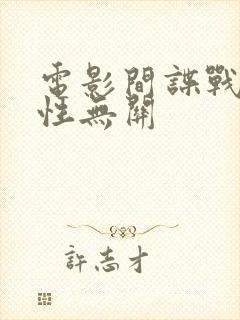 電影間諜戰
性無關
許志才